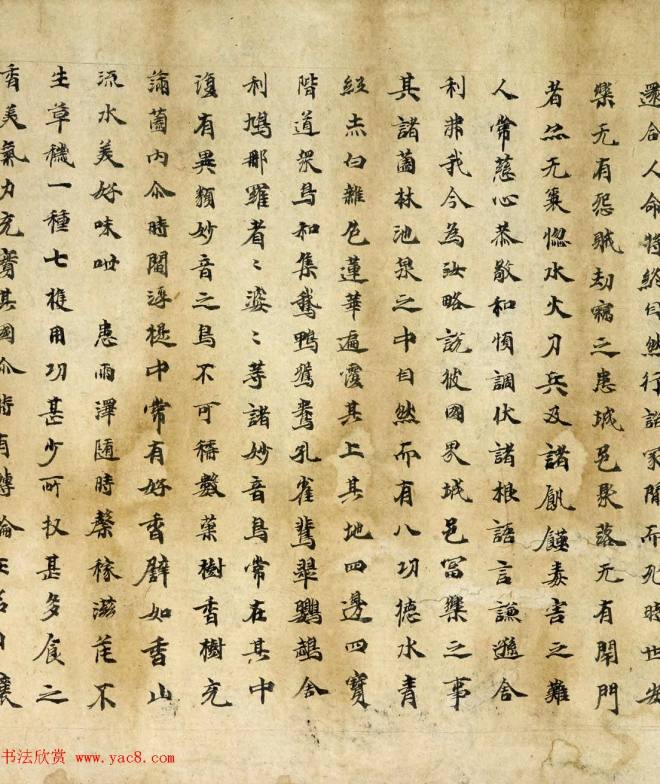 還合人命將終自然行詣冢間而死時世安
樂无有怨賊劫竊之患城邑聚落无有閇門
者亦无衰惱水火刀兵及諸飢饉毒害之難
人常慈心恭敬和順調伏諸根語言謙遜舍
利弗我今為汝略說彼國界城邑冨樂之事
其諸薗林池泉之中自然而有八功德水青
紅赤白雜色蓮華遍覆其上其地四邊四寶
階道衆鳥和集鵝鴨鴛鴦孔雀翡翠鸚鵡舍
利鳩那羅耆〻婆〻等諸妙音鳥常在其中
復有異類妙音之鳥不可稱數菓樹香樹充
滿薗內尒時閻浮提中常有好香辟如香山
流水美好味咁 患雨澤隨時榖稼滋茂不
生草穢一種七穫用功甚少所收甚多食之
香美氣力充實其國尒時有轉輪王名曰蠰
书法欣赏 www.yac8.com